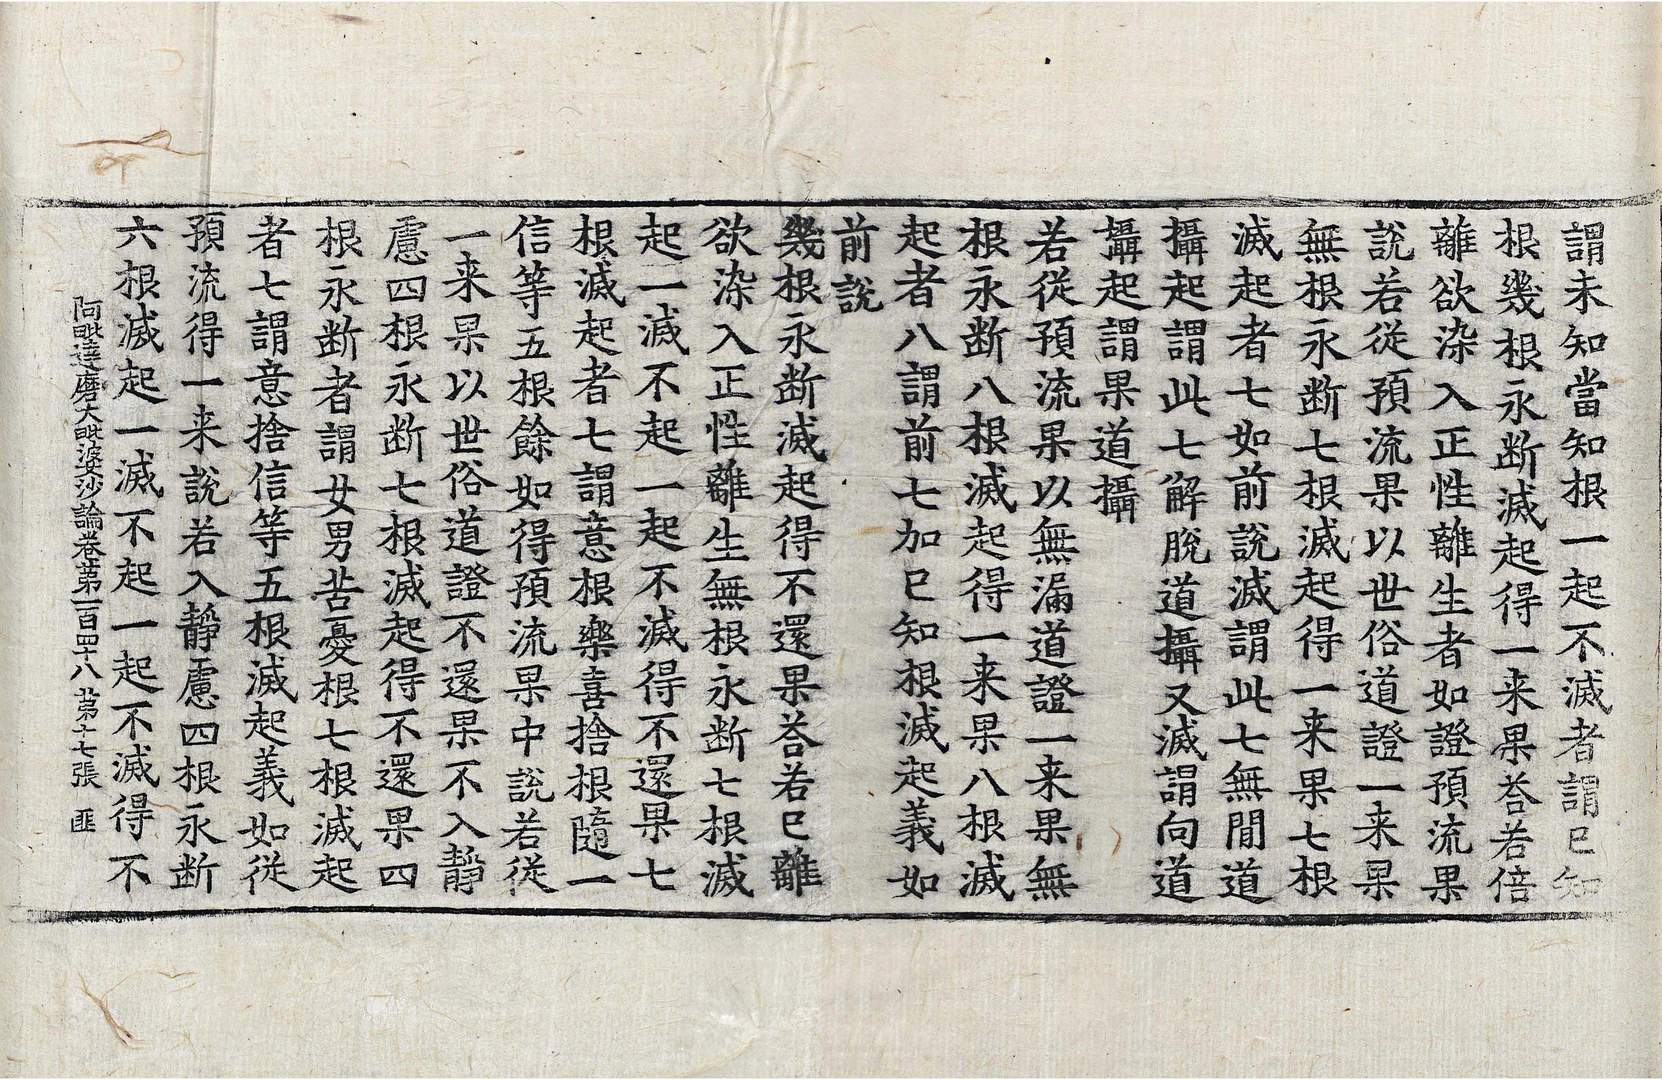 謂未知當知根一起不滅者謂已知
根幾根永断滅起得一来果荅若倍
離欲染入正性離生者如證預流果
說若從預流果以世俗道證一来果
無根永断七根滅起得一来果七根
滅起者七如前說滅謂此七無閒道
攝起謂此七解脫道攝又滅謂向道
攝起謂果道攝
若從預流果以無漏道證一来果無
根永断八根滅起得一来果八根滅
起者八謂前七加已知根滅起義如
前說
幾根永断滅起得不還果荅若已離
欲染入正性離生無根永断七根滅
起一滅不起一起不滅得不還果七
根滅起者七謂意根樂喜捨根隨一
信等五根餘如得預流果中說若從
一来果以世俗道證不還果不入靜
慮四根永断七根滅起得不還果四
根永断者謂女男苦憂根七根滅起
者七謂意捨信等五根滅起義如從
預流得一来說若入靜慮四根永断
六根滅起一滅不起一起不滅得不
阿毗達磨大毗婆沙論卷第一百四十八 第十七張 匪